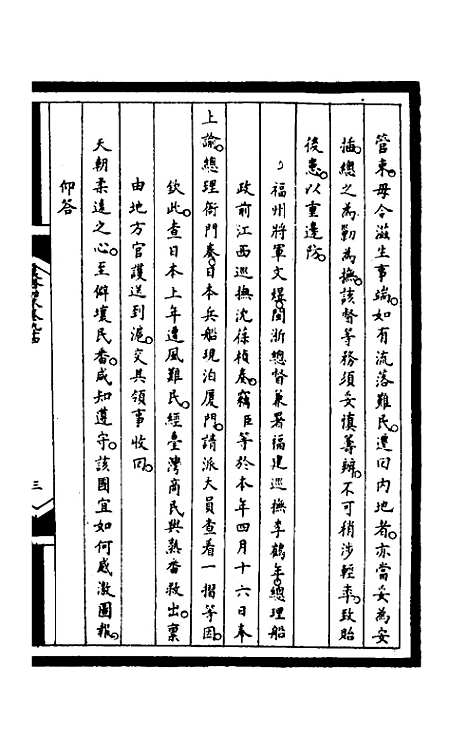 管束。毋令滋生事端。如有流落難民。遣回內地者。亦當妥為安
插。總之為勦為撫。該督等務須妥慎籌辦。不可稍涉輕率。致貽
後患。以重邊防。
福州將軍文煜。閩浙總督兼署福建巡撫李鶴年。總理船
政前江西巡撫沈葆楨奏。竊臣等於本年四月十六日奉
上諭。總理衙門奏。日本兵船現泊廈門。請派大員查看一摺等因。
欽此。查日本上年遭風難民。經臺灣商民與熟番救出。稟
由地方官護送到滬。交其領事收回。
天朝柔遠之心。至僻壤民番。咸知遵守。該國宜如何感激圖報。
仰答
三